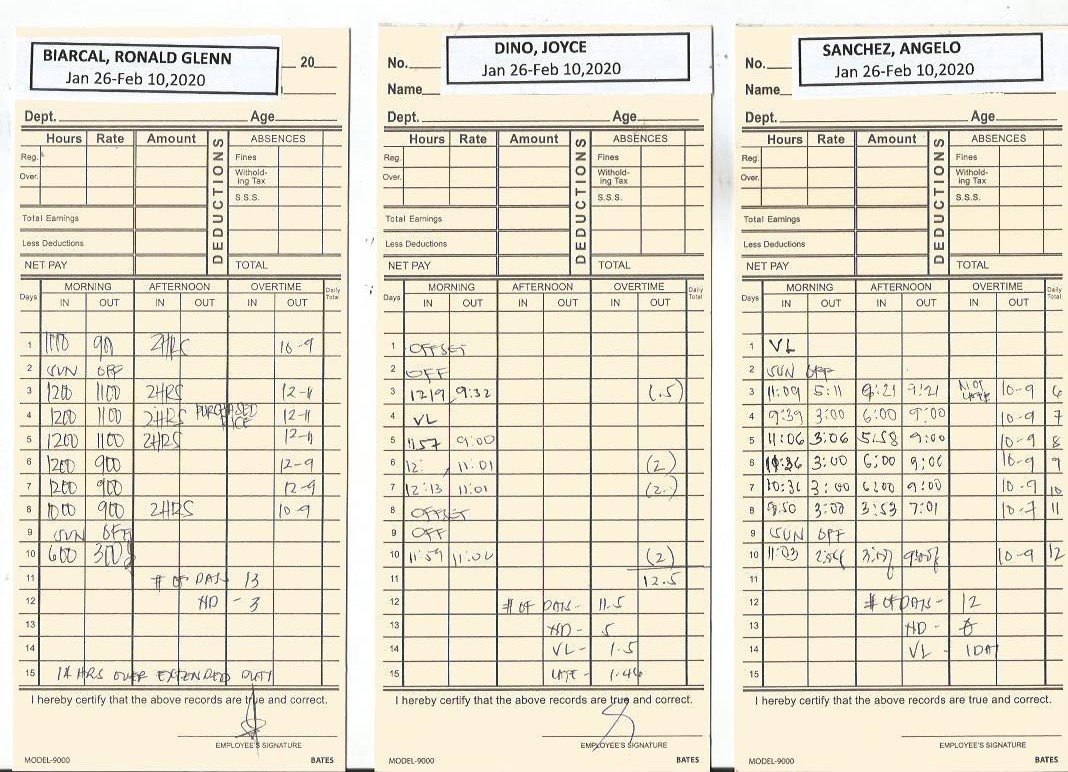 BIARCAL, RONALD GLENN
Jan 26-Feb 10,2020
20
Dept. Age
Hours Rate Amount DEDUCTIONS ABSENCES
Reg. Fines
Over. Withold-
ing Tax
S.S.S.
Total Earnings
Less Deductions
NET PAY TOTAL
Days MORNING AFTERNOON OVERTIME Daily Total
IN OUT IN OUT IN OUT
1 2HRS 10-9
2 SUN OFF
3 1200 1100 2HRS 12-11
4 1200 1100 2HRS PURCHASED 12-11
5 1200 1100 2HRS 12-11
6 1200 900 12-9
7 1200 900 12-9
8 1000 900 2HRS 10-9
9 SUN OFF
10 600 300
11 # OF DAYS 13
12 ND - 3
13
14
15 14 HRS OVER EXTENDED DUTY
I hereby certify that the above records are true and correct.
EMPLOYEE'S SIGNATURE
MODEL-9000 BATES
No. DINO, JOYCE
Name Jan 26-Feb 10,2020
Dept. Age
Hours Rate Amount DEDUCTIONS ABSENCES
Reg. Fines
Over. Withold-
ing Tax
S.S.S.
Total Earnings
Less Deductions
NET PAY TOTAL
Days MORNING AFTERNOON OVERTIME Daily Total
IN OUT IN OUT IN OUT
1 OFFSET
2 OFF
3 1219 9:32 (.5)
4 VL
5 11:57 9:00
6 12: 11:01 (2)
7 12:13 11:01 (2)
8 OFFSET
9 OFF
10 11:59 (2)
11 12.5
12 # OF DAYS - 11.5
13 ND - 5
14 VL - 1.5
15 LATE - 1.46
I hereby certify that the above records are true and correct.
EMPLOYEE'S SIGNATURE
MODEL-9000 BATES
No. SANCHEZ, ANGELO
Name Jan 26-Feb 10,2020
Dept. Age
Hours Rate Amount DEDUCTIONS ABSENCES
Reg. Fines
Over. Withold-
ing Tax
S.S.S.
Total Earnings
Less Deductions
NET PAY TOTAL
Days MORNING AFTERNOON OVERTIME Daily Total
IN OUT IN OUT IN OUT
1 VL
2 SUN OFF
3 11:09 5:11 NOT LATE 10-9 6
4 9:39 3:00 6:00 9:00 10-9 7
5 11:06 3:06 5:58 9:00 10-9 8
6 3:00 6:00 9:00 10-9 9
7 10:31 3:00 6:00 9:00 10-9 10
8 9:50 3:00 3:53 7:01 10-7 11
9 SUN OFF
10 11:03 10-9 12
11
12 # OF DAYS - 12
13 ND -
14 VL - 1 DAY
15
I hereby certify that the above records are true and correct.
EMPLOYEE'S SIGNATURE
MODEL-9000 BATES